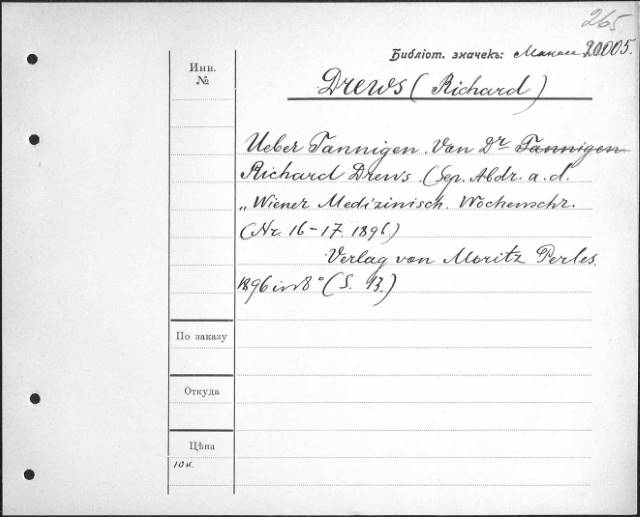 265
Библіот. значекъ: Манассе 20005.
Инв.
№
Drews (Richard)
Ueber Tannigen. Von Dr Tannigen
Richard Drews. (Sep. Abdr. a. d.
„Wiener Medizinisch. Wochenschr.
(Nr. 16-17. 1896)
Verlag von Moritz Perles.
1896 in 8° (S. 13.)
По заказу
Откуда
Цѣна
10 к.